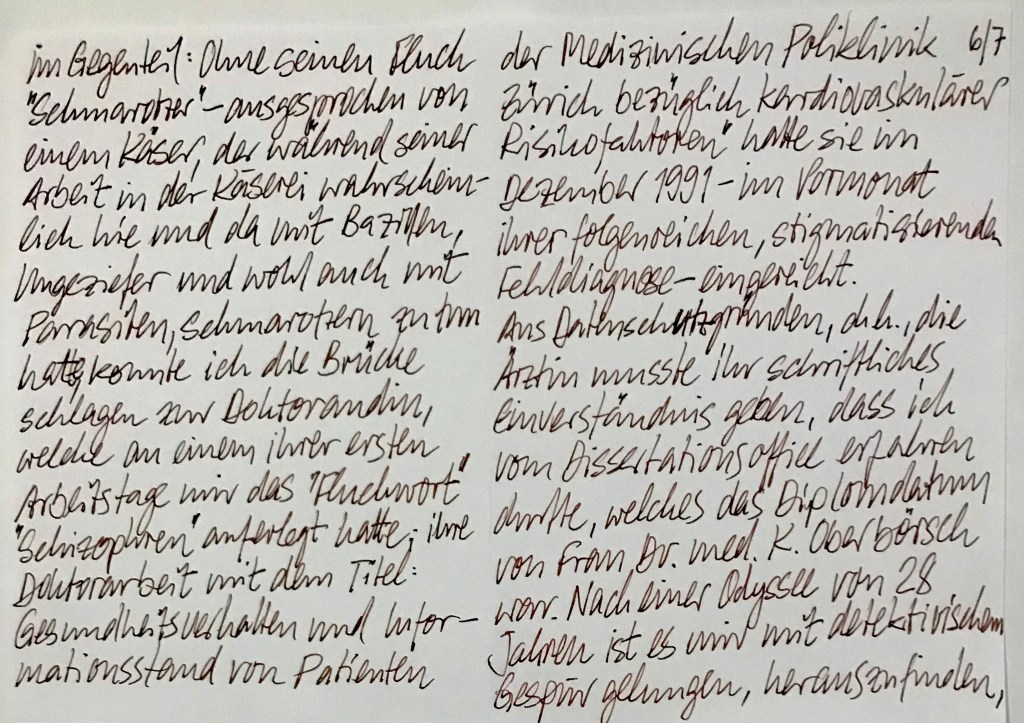 im Gegenteil: Ohne seinen Fluch
"Schmarotzer" – ausgesprochen von
einem Käser, der während seiner
Arbeit in der Käserei wahrschein-
lich hie und da mit Bazillen,
Ungeziefer und wohl auch mit
Parasiten, Schmarotzern zu tun
hatte, konnte ich die Brücke
schlagen zur Doktorandin,
welche an einem ihrer ersten
Arbeitstage mir das "Fluchwort"
"Schizophren" auferlegt hatte; ihre
Doktorarbeit mit dem Titel:
Gesundheitsverhalten und Infor-
mationsstand von Patienten
6/7
der Medizinischen Poliklinik
Zürich bezüglich kardiovaskulärer
Risikofaktoren" hatte sie im
Dezember 1991 – im Vormonat
ihrer folgenreichen, stigmatisierenden
Fehldiagnose – eingereicht.
Aus Datenschutzgründen, d.h., die
Ärztin musste ihr schriftliches
Einverständnis geben, dass ich
vom Dissertationsoffice erfahren
durfte, welches das Diplomdatum
von Frau Dr. med. K. Oberbörsch
war. Nach einer Odyssee von 28
Jahren ist es mir mit detektivischem
Gespür gelungen, herauszufinden,